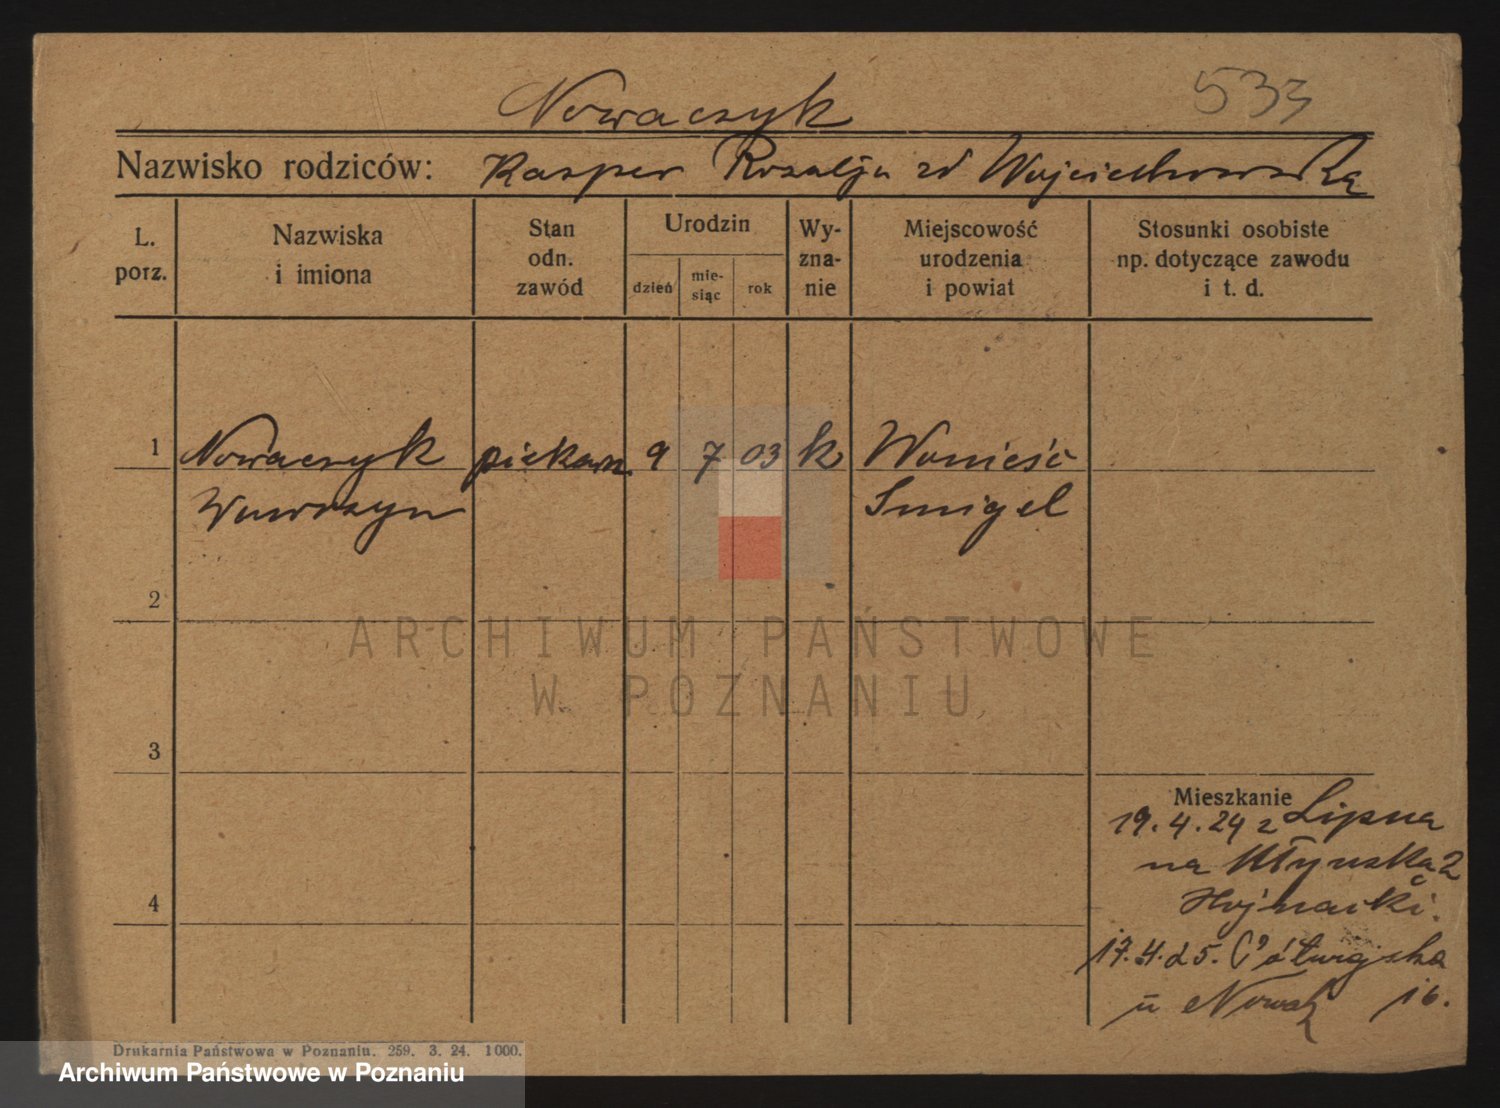 Nowaczyk 533
Nazwisko rodziców: Kasper Rozalja zd Wojciechowska
L. porz.
Nazwiska i imiona
Stan odn. zawód
Urodzin
dzień
mie-siąc
rok
Wy-zna-nie
Miejscowość urodzenia i powiat
Stosunki osobiste np. dotyczące zawodu i t. d.
1 Nowaczyk piekarz 9 7 03 k Wonieść
Wawrzyn Smigel
2
ARCHIWUM PAŃSTWOWE
W POZNANIU
3
Mieszkanie
19.4.24 z Lipna
na Młyńska 2
4
Hojnacki.
17.4.25.
u Nowak 16.
Drukarnia Państwowa w Poznaniu. 259. 3. 24. 1000.
Archiwum Państwowe w Poznaniu